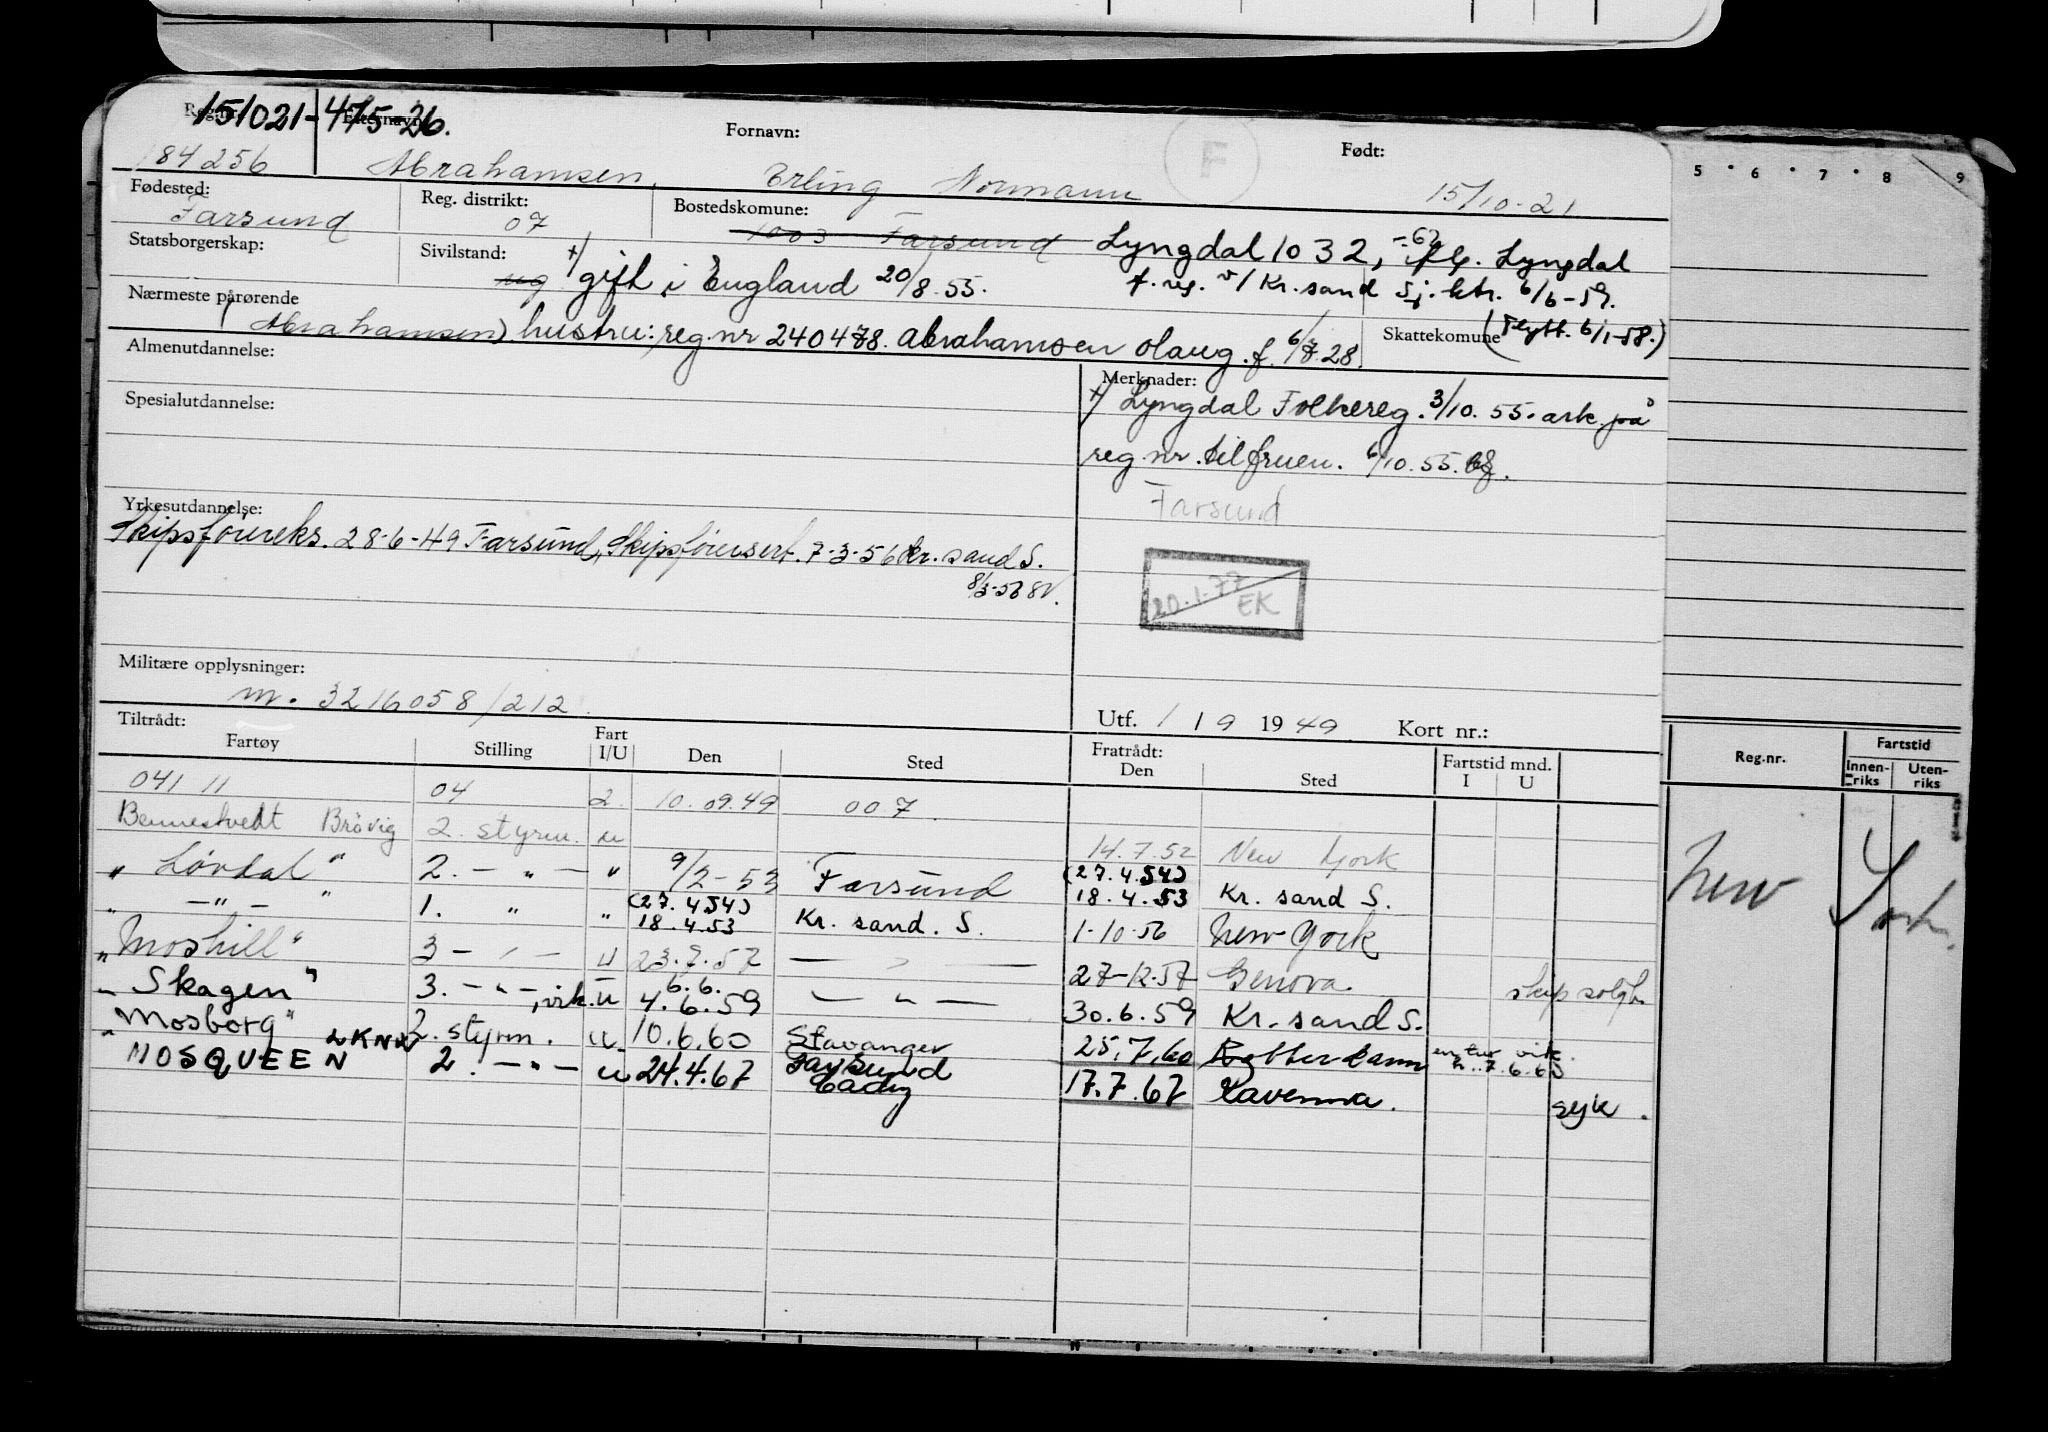 151021-475-26.
Reg.nr. Etternavn: Fornavn: Født:
184256 Abrahamsen, Erling Normann 15/10-21
F
Fødested: Reg. distrikt: Bostedskomune:
Farsund 07 1003 Farsund Lyngdal 1032, -62 Lyngdal
Statsborgerskap: Sivilstand:
ug +) gift i England 20/8.55. f. reg. v/ Kr.sand Sj.ktr. 6/6-59.
Nærmeste pårørende Skattekomune (Flytt. 6/1-58.)
(Abrahamsen) hustru: reg.nr 240478. Abrahamsen Olaug. f. 6/7.28
Almenutdannelse: Merknader:
+) Lyngdal Folkereg. 3/10.55. ark. på
Spesialutdannelse:
reg.nr. til fruen. 6/10.55.
Farsund
Yrkesutdannelse:
Skipsførereks. 28-6-49 Farsund, Skipsførersert. 7-3-56 Kr.sand S.
8/3-56
20.1.77
EK
Militære opplysninger:
m. 3216058/212.
Tiltrådt: Utf. 1 / 9 1949 Kort nr.:
Fartøy Stilling Fart I/U Den Sted Fratrådt: Den Sted Fartstid mnd. I U
041 11 04 2. 10.09.49 007
Bennestvedt Brøvig 2. styrm. u 14.7.52 New York
" Lövdal " 2. - " - " 9/2-53 Farsund (27.4.54) 18.4.53 Kr. sand S.
" - " - " 1. " " (27.4.54) 18.4.53 Kr. sand. S. 1-10-56 New York
" Moshill " 3 - " - u 23.7.57 - " - 27-12-57 Genova. skip solgt.
" Skagen " 3. - " -, virk. u 6.6. 4.6.59 - " - 30.6.59 Kr. sand S.
" Mosborg " 2. styrm. u 10.6.60 Stavanger 25.7.60 Rotterdam
MOSQUEEN 2. - " - u 24.4.67 Farsund Cadiz 17.7.67 Ravenna. syk.
5 6 7 8 9
Reg.nr. Fartstid
Innenriks Utenriks
New York.